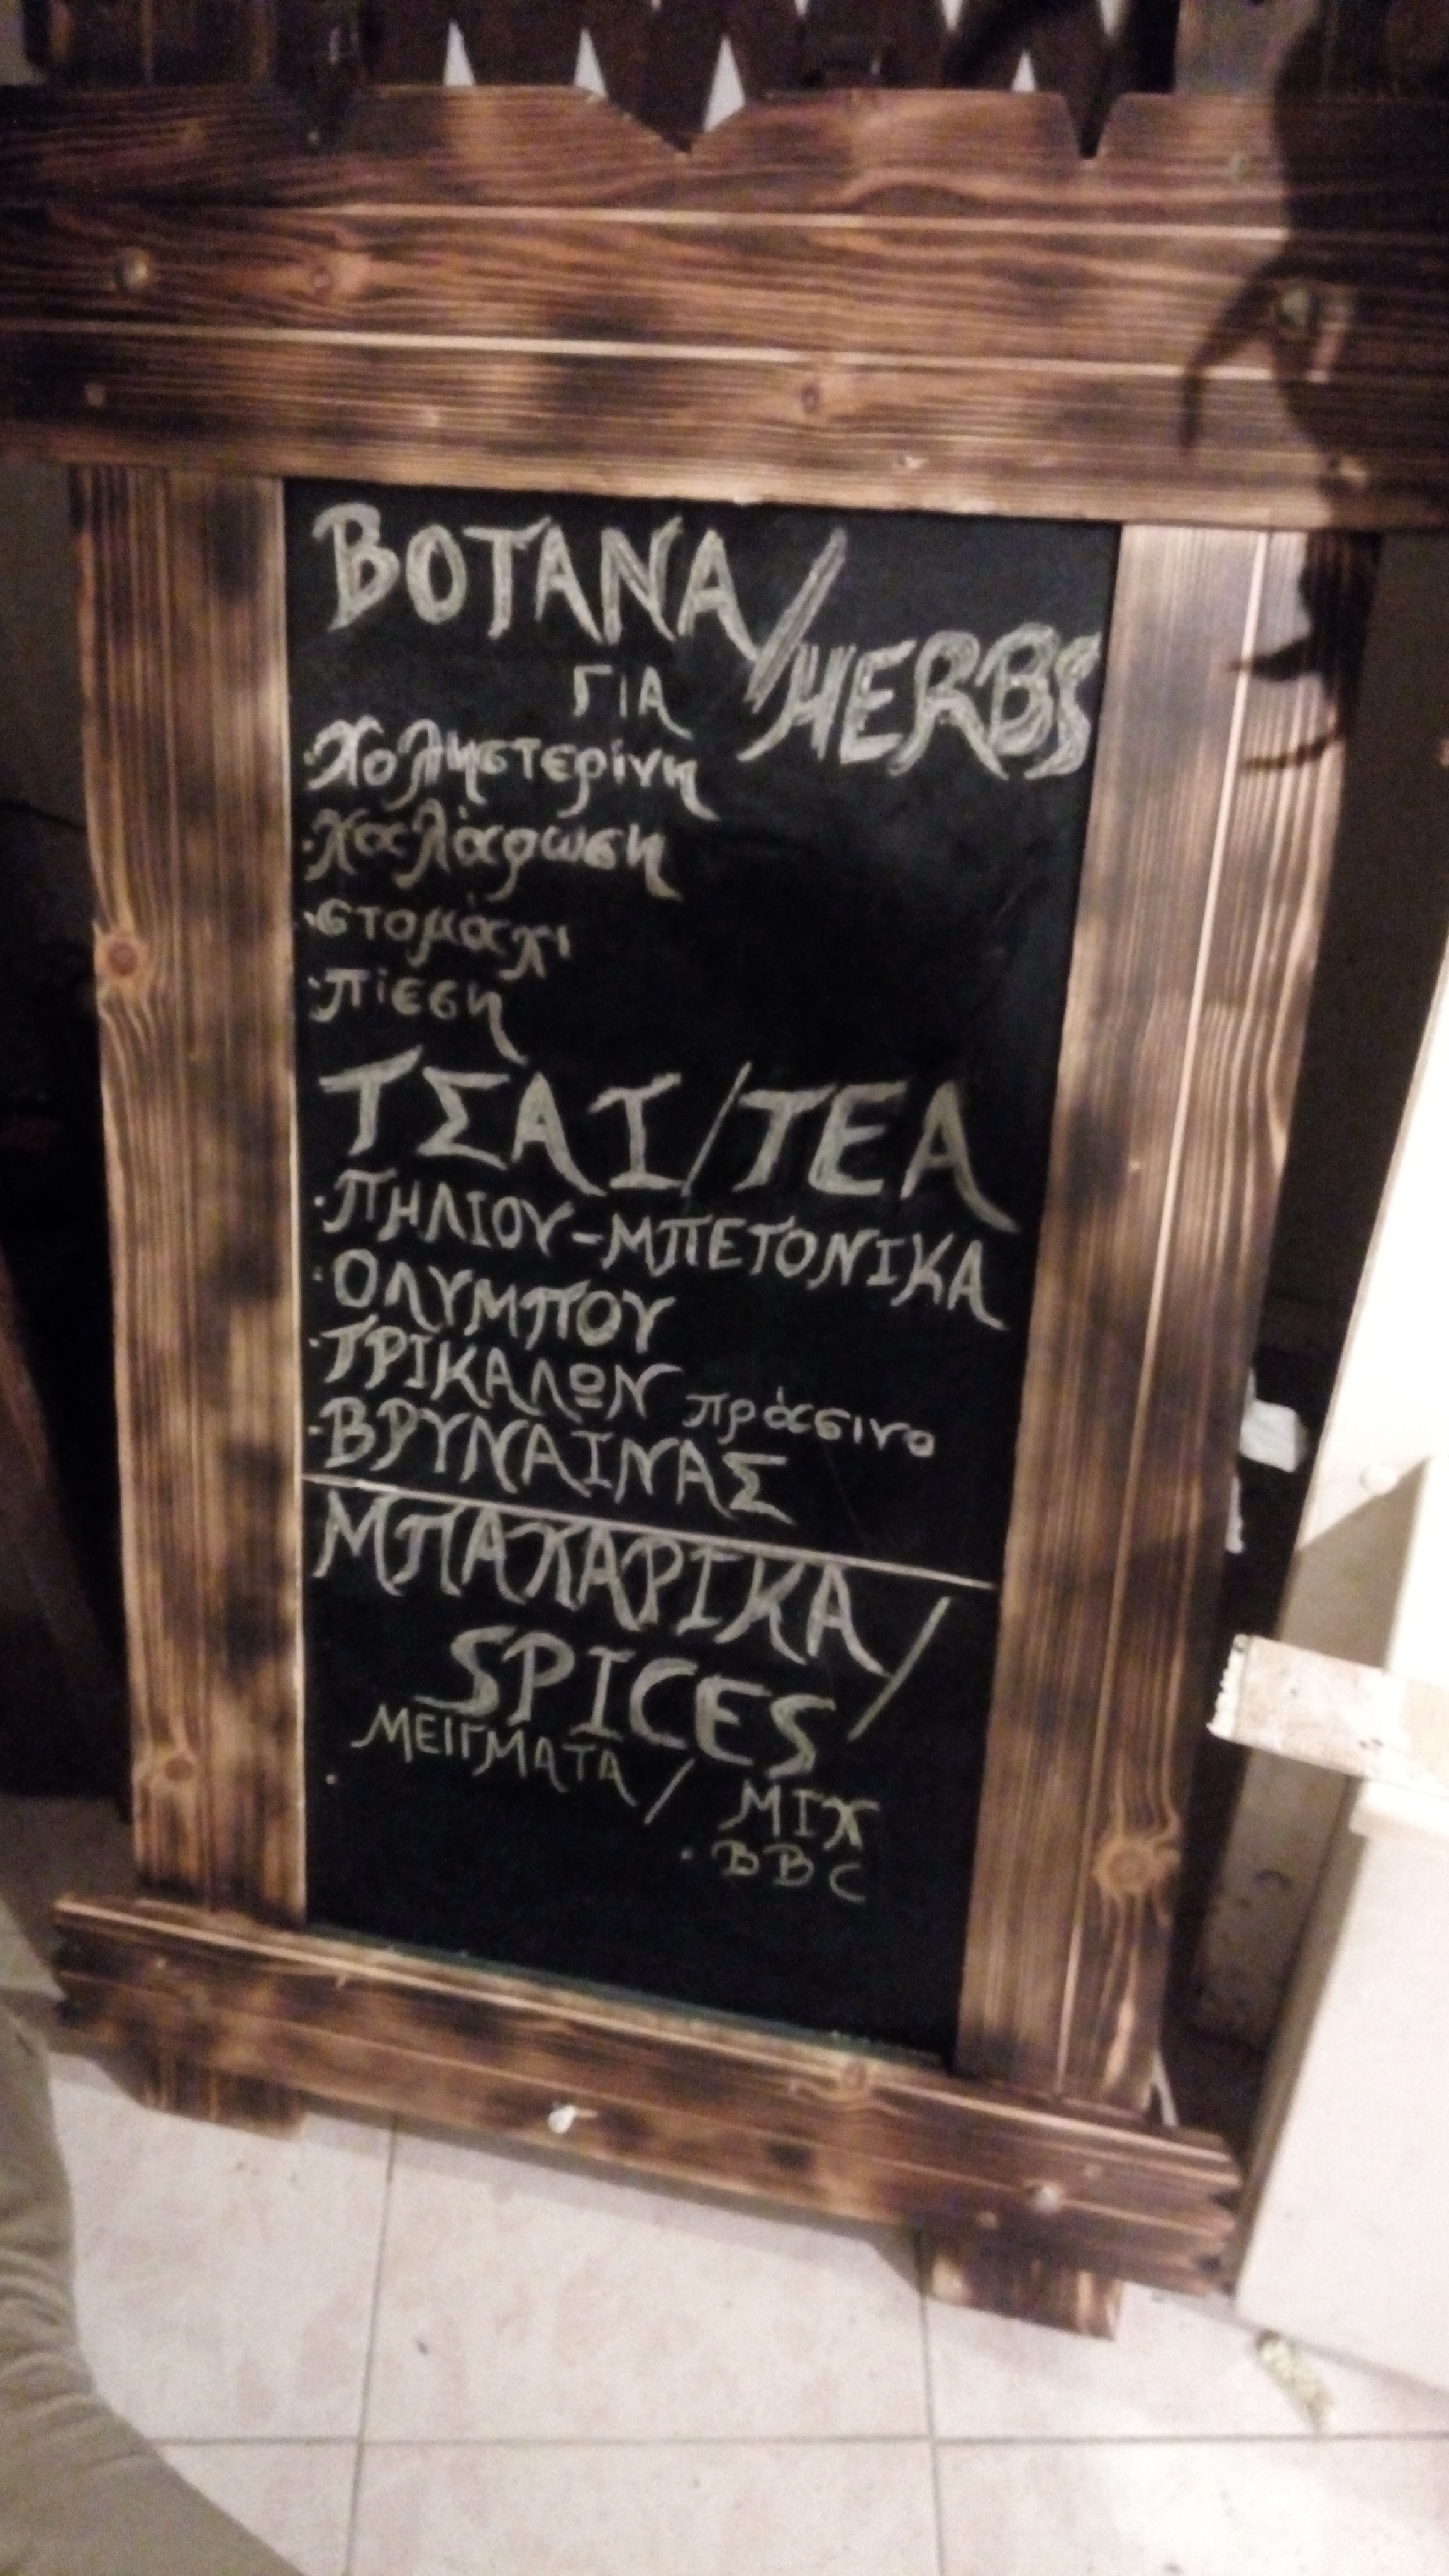 ΒΟΤΑΝΑ/HERBS
ΓΙΑ
·Χοληστερίνη
·χαλάρωση
·στομάχι
·πίεση
ΤΣΑΙ/TEA
·ΠΗΛΙΟΥ-ΜΠΕΤΟΝΙΚΑ
·ΟΛΥΜΠΟΥ
·ΤΡΙΚΑΛΩΝ πράσινο
·ΒΡΥΝΑΙΝΑΣ
ΜΠΑΧΑΡΙΚΑ/
SPICES
ΜΕΙΓΜΑΤΑ/ MIX
·BBC